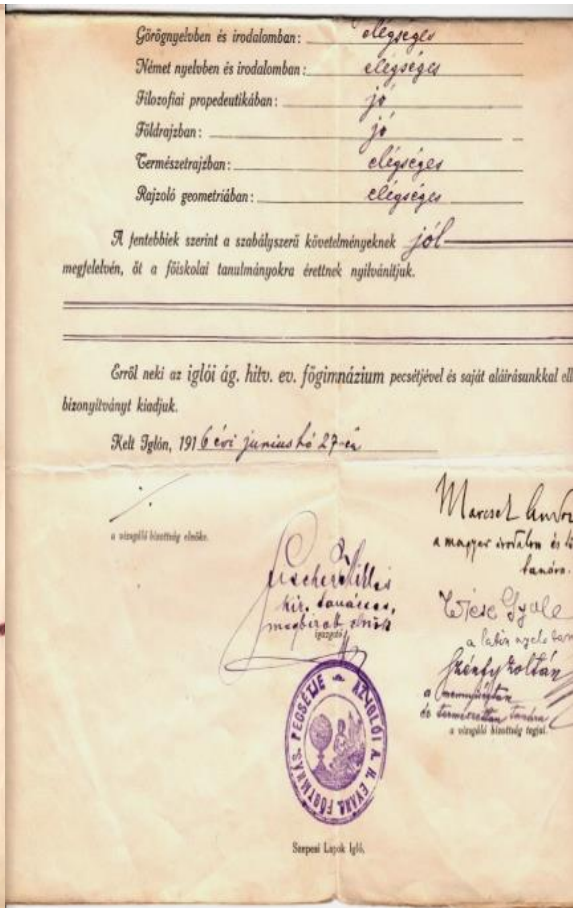 Görögnyelvben és irodalomban: elégséges
Német nyelvben és irodalomban: elégséges
Filozofiai propedeutikában: jó
Földrajzban: jó
Természetrajzban: elégséges
Rajzoló geometriában: elégséges
A fentebbiek szerint a szabályszerű követelményeknek jól
megfelelvén, őt a főiskolai tanulmányokra érettnek nyilvánítjuk.
Erről neki az iglói ág. hitv. ev. főgimnázium pecsétjével és saját aláirásunkkal ell
bizonyítványt kiadjuk.
Kelt Iglón, 1916 évi junius hó 27-én
a vizsgáló bizottság elnöke.
Fischer Miklós
kir. tanácsos,
megbizott elnök
igazgató
Marcsek Andor
a magyar irodalom és
tanára.
Gyula
a latin nyelv
Zoltán
a mennyiségtan
és természettan tanára
a vizsgáló bizottság tagjai.
AZ IGLÓI Á. H. EVANG. FŐGIMNÁS. PECSÉTJE
Szepesi Lapok Igló.